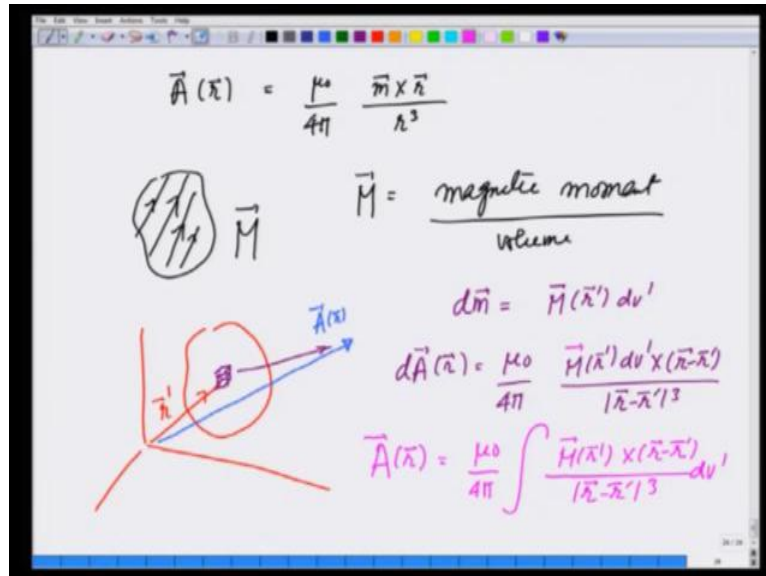 File Edit View Insert Actions Tools Help
B I
\vec{A}(\vec{r}) = \frac{\mu_0}{4\pi} \frac{\vec{m} \times \vec{r}}{r^3}
\vec{M}
\vec{M} = \frac{magnetic moment}{volume}
d\vec{m} = \vec{M}(\vec{r}') dv'
\vec{A}(\vec{r})
\vec{r}'
d\vec{A}(\vec{r}) = \frac{\mu_0}{4\pi} \frac{\vec{M}(\vec{r}') dv' \times (\vec{r}-\vec{r}')}{|\vec{r}-\vec{r}'|^3}
\vec{A}(\vec{r}) = \frac{\mu_0}{4\pi} \int \frac{\vec{M}(\vec{r}') \times (\vec{r}-\vec{r}')}{|\vec{r}-\vec{r}'|^3} dv'